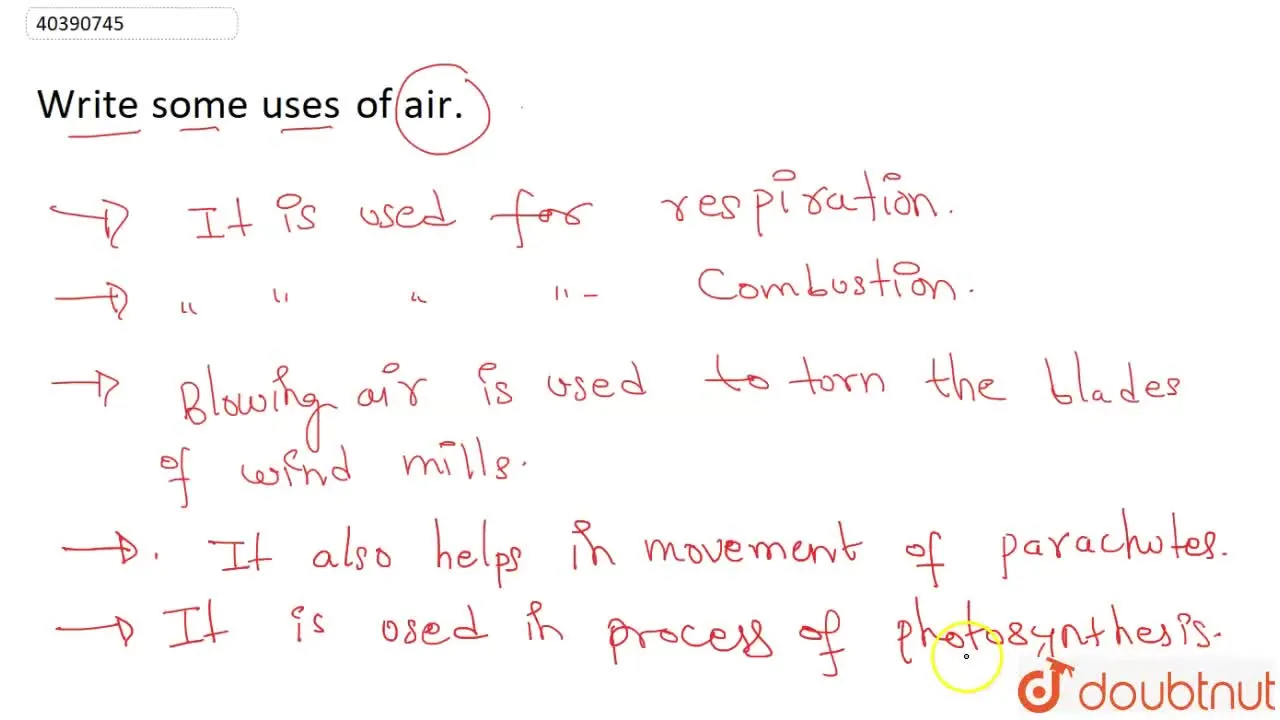 40390745
Write some uses of air.
→ It is used for respiration.
→ " " " " - Combustion.
→ Blowing air is used to torn the blades
of wind mills.
→ . It also helps in movement of parachutes.
→ It is used in process of photosynthesis.
doubtnut